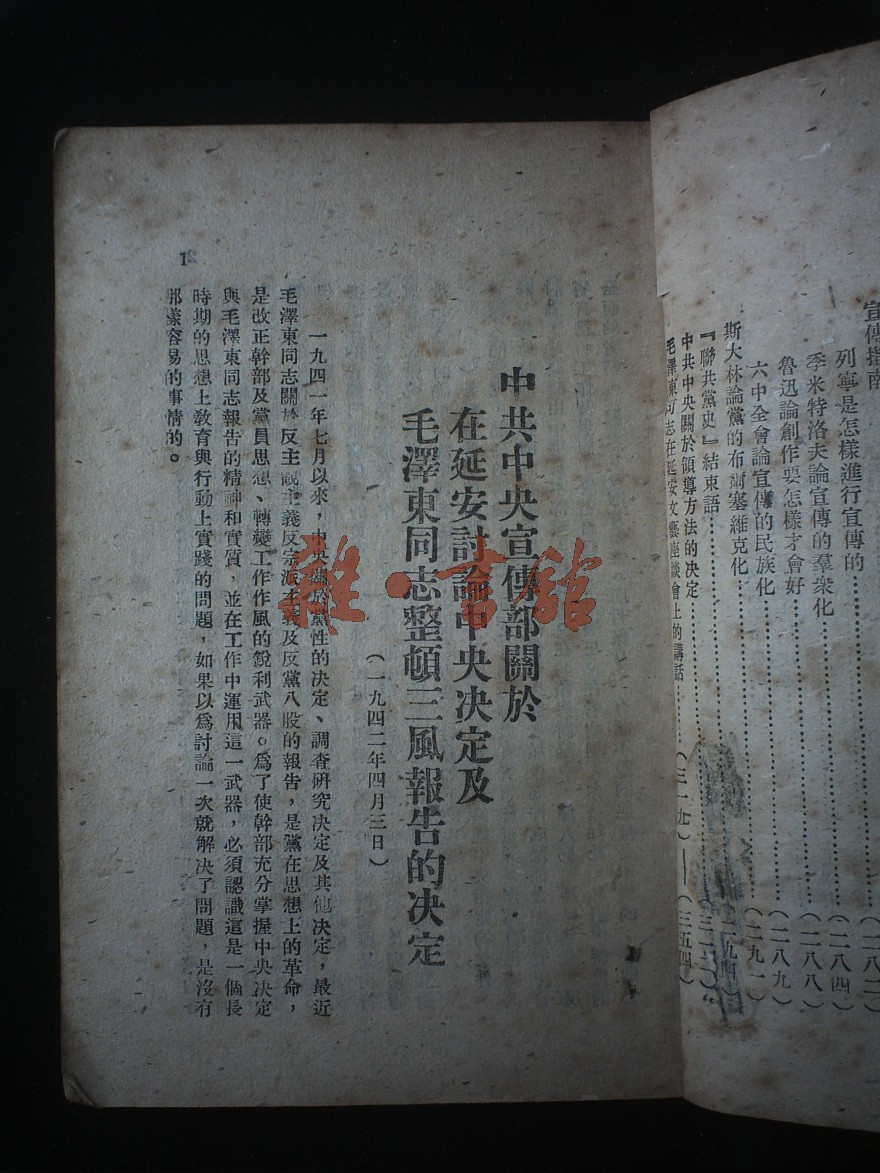 宣傳指南
列寧是怎樣進行宣傳的……………(二八四)
季米特洛夫論宣傳的羣衆化……………(二八八)
魯迅論創作要怎樣才會好……………(二八九)
六中全會論宣傳的民族化……………(二九一)
斯大林論黨的布爾塞維克化……………(二九四)
『聯共黨史』結束語……………
中共中央關於領導方法的決定……………
毛澤東同志在延安文藝座談會上的講話……(三一九)——(三五四)
中共中央宣傳部關於
在延安討論中央決定及
毛澤東同志整頓三風報告的決定
(一九四二年四月三日)
一九四一年七月以來,中央關於黨性的決定、調査硏究決定及其他決定,最近
毛澤東同志關於反主觀主義反宗派主義及反黨八股的報告,是黨在思想上的革命,
是改正幹部及黨員思想、轉變工作作風的銳利武器。爲了使幹部充分掌握中央決定
與毛澤東同志報告的精神和實質,並在工作中運用這一武器,必須認識這是一個長
時期的思想上敎育與行動上實踐的問題,如果以爲討論一次就解決了問題,是沒有
那樣容易的事情的。
雜·書館